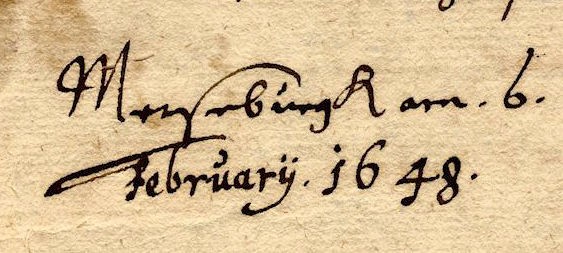 Merseburgk am. 6.
February. 1648.